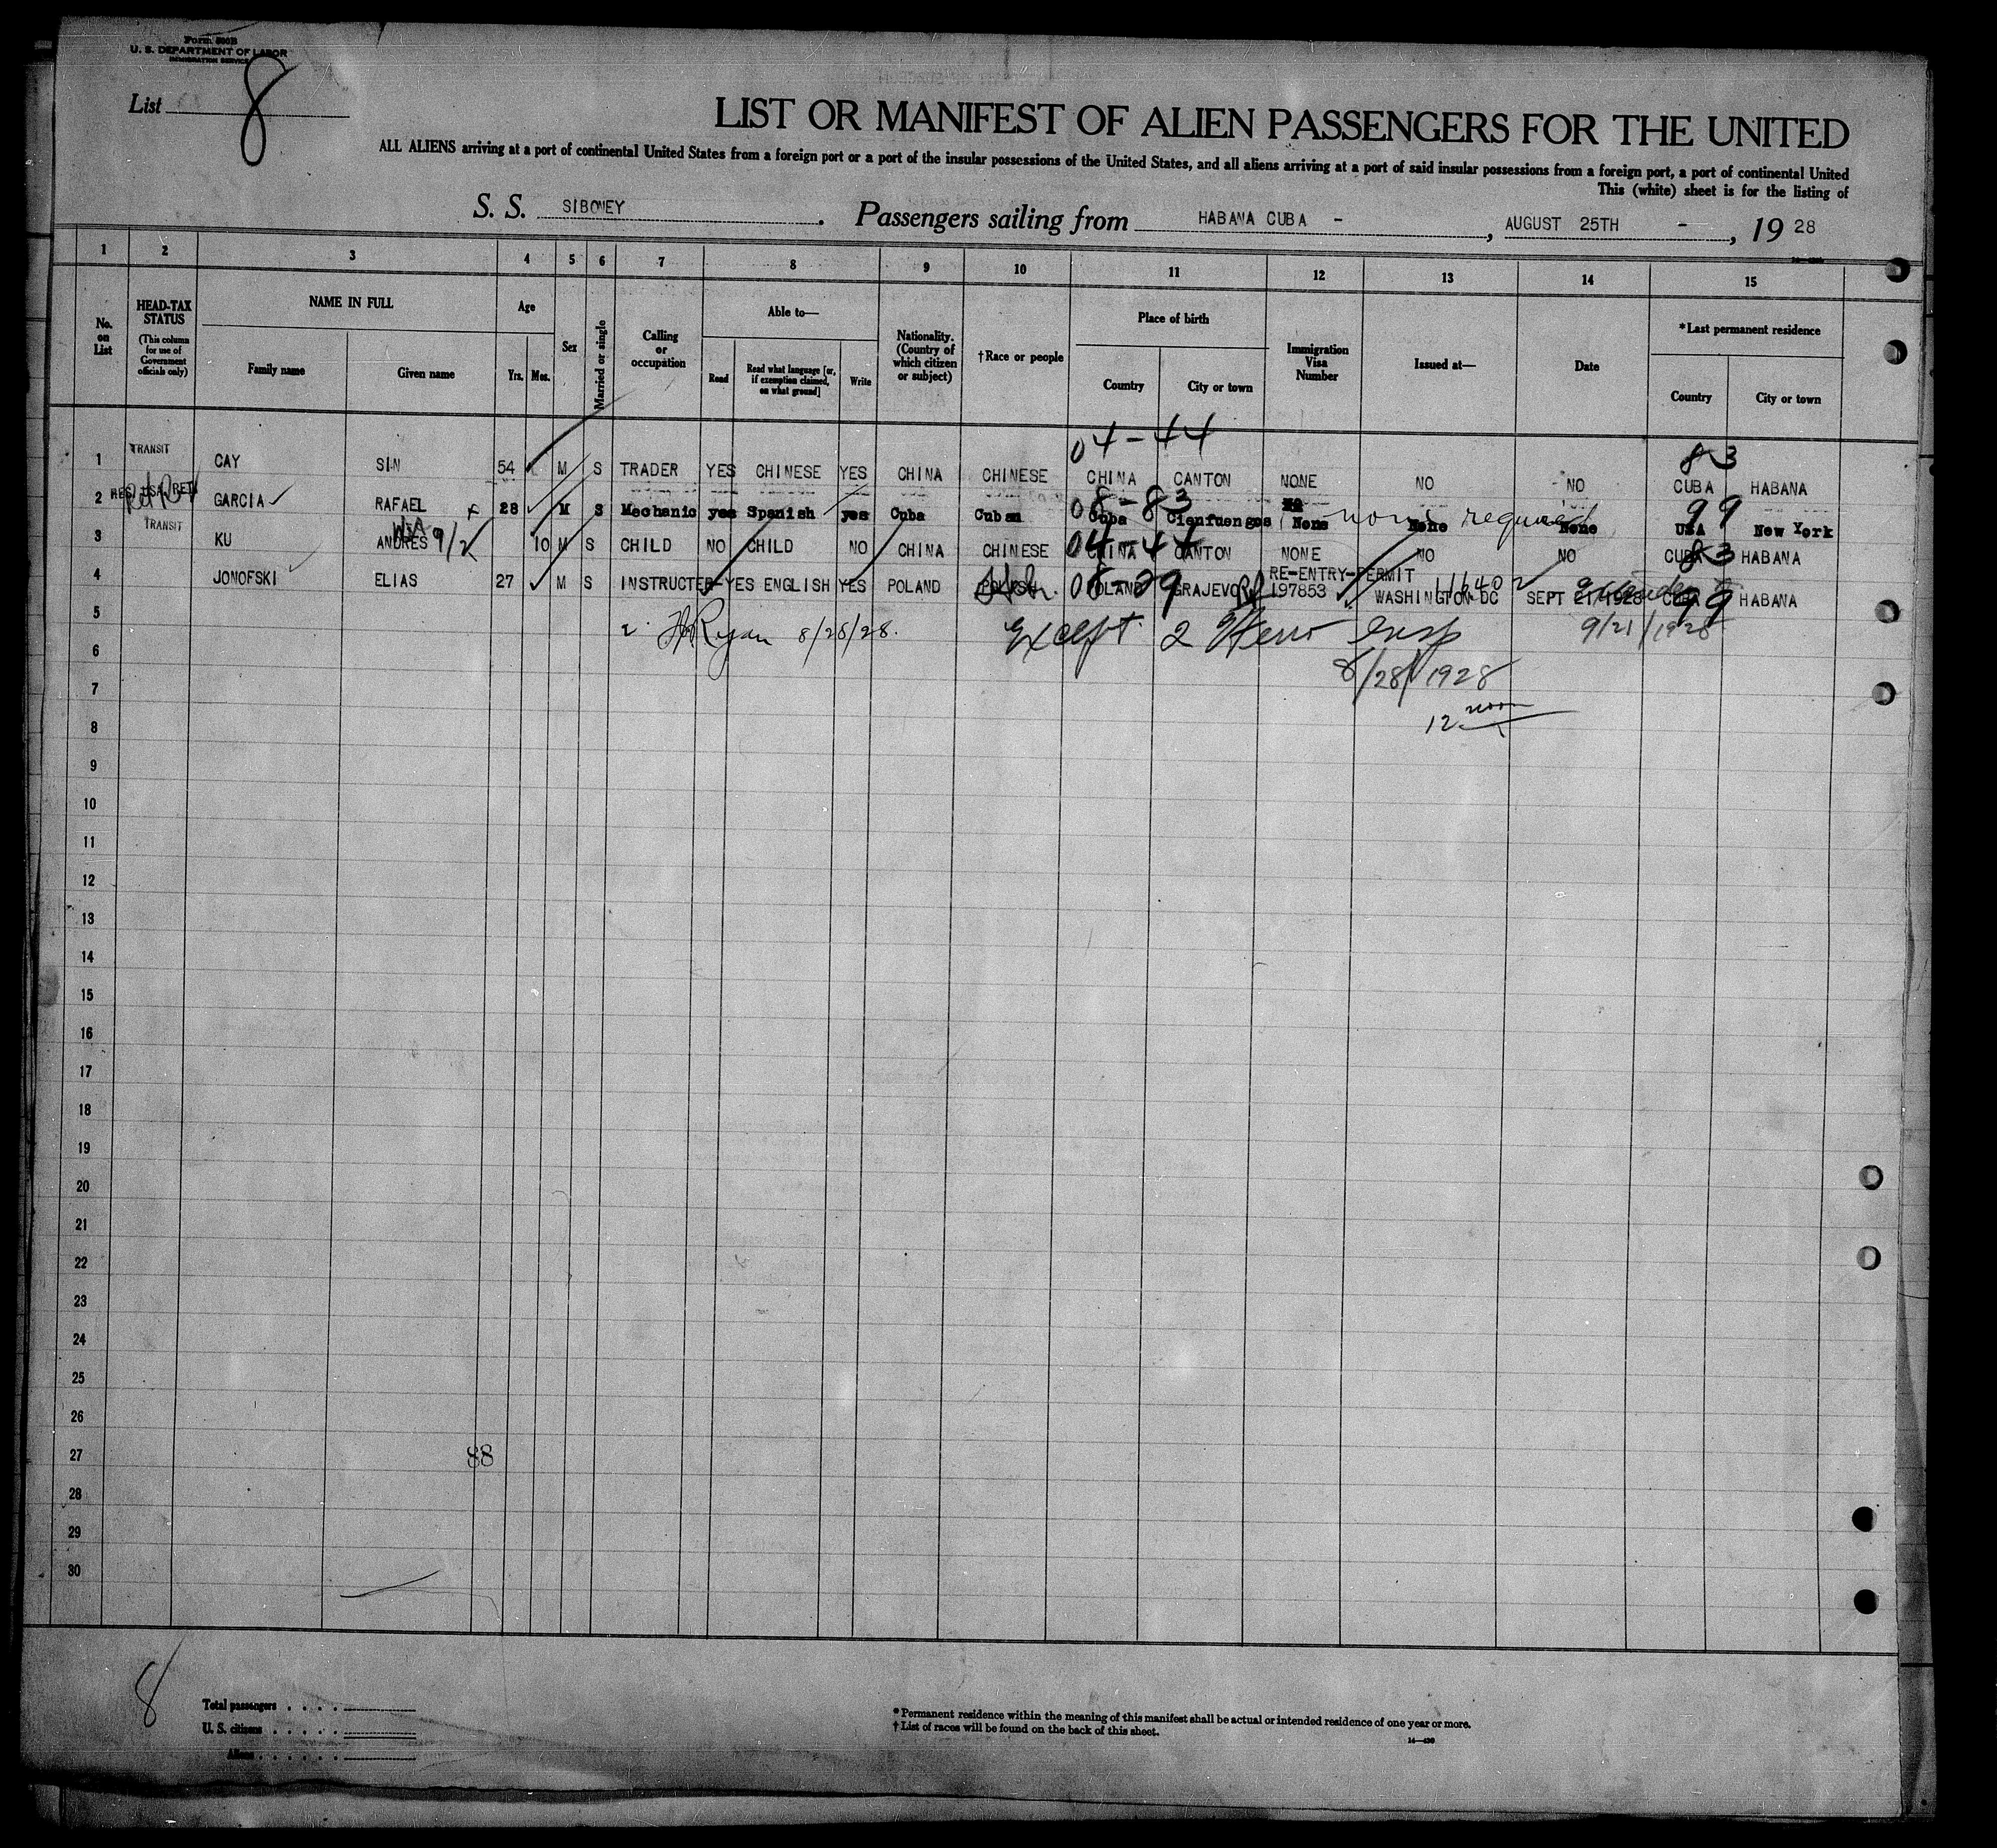 Form 500B
U. S. DEPARTMENT OF LABOR
IMMIGRATION SERVICE
List 8
LIST OR MANIFEST OF ALIEN PASSENGERS FOR THE UNITED
ALL ALIENS arriving at a port of continental United States from a foreign port or a port of the insular possessions of the United States, and all aliens arriving at a port of said insular possessions from a foreign port, a port of continental United
This (white) sheet is for the listing of
S. S. SIBONEY. Passengers sailing from HABANA CUBA -, AUGUST 25TH -, 19 28
1 2 3 4 5 6 7 8 9 10 11 12 13 14 15
No. on List
HEAD-TAX STATUS
(This column for use of Government officials only)
NAME IN FULL
Family name
Given name
Age
Yrs. Mos.
Sex
Married or single
Calling or occupation
Able to—
Read
Read what language [or, if exemption claimed, on what ground]
Write
Nationality. (Country of which citizen or subject)
†Race or people
Place of birth
Country
City or town
Immigration Visa Number
Issued at—
Date
*Last permanent residence
Country
City or town
04-44
83
1 TRANSIT CAY SIN 54 M S TRADER YES CHINESE YES CHINA CHINESE CHINA CANTON NONE NO NO CUBA HABANA
08-83 none required 99
2 GARCIA RAFAEL 28 M S Mechanic yes Spanish yes Cuba Cuban Cuba Cienfuengos None None None USA New York
9/2 04-44 83
3 TRANSIT KU ANDRES 10 M S CHILD NO CHILD NO CHINA CHINESE CHINA CANTON NONE NO NO CUBA HABANA
4 JONOFSKI ELIAS 27 M S INSTRUCTER YES ENGLISH YES POLAND POLISH Heb. POLAND 08-29 GRAJEVO RE-ENTRY-PERMIT 197853 WASHINGTON DC SEPT 21/1928 CUBA 99 HABANA
5 Ryan 8/28/28. Except 2 Item insp 9/21/1928
6 8/28/1928
7 12 noon
8
9
10
11
12
13
14
15
16
17
18
19
20
21
22
23
24
25
26
27 88
28
29
30
8
Total passengers
U. S. citizens
Aliens
* Permanent residence within the meaning of this manifest shall be actual or intended residence of one year or more.
† List of races will be found on the back of this sheet.